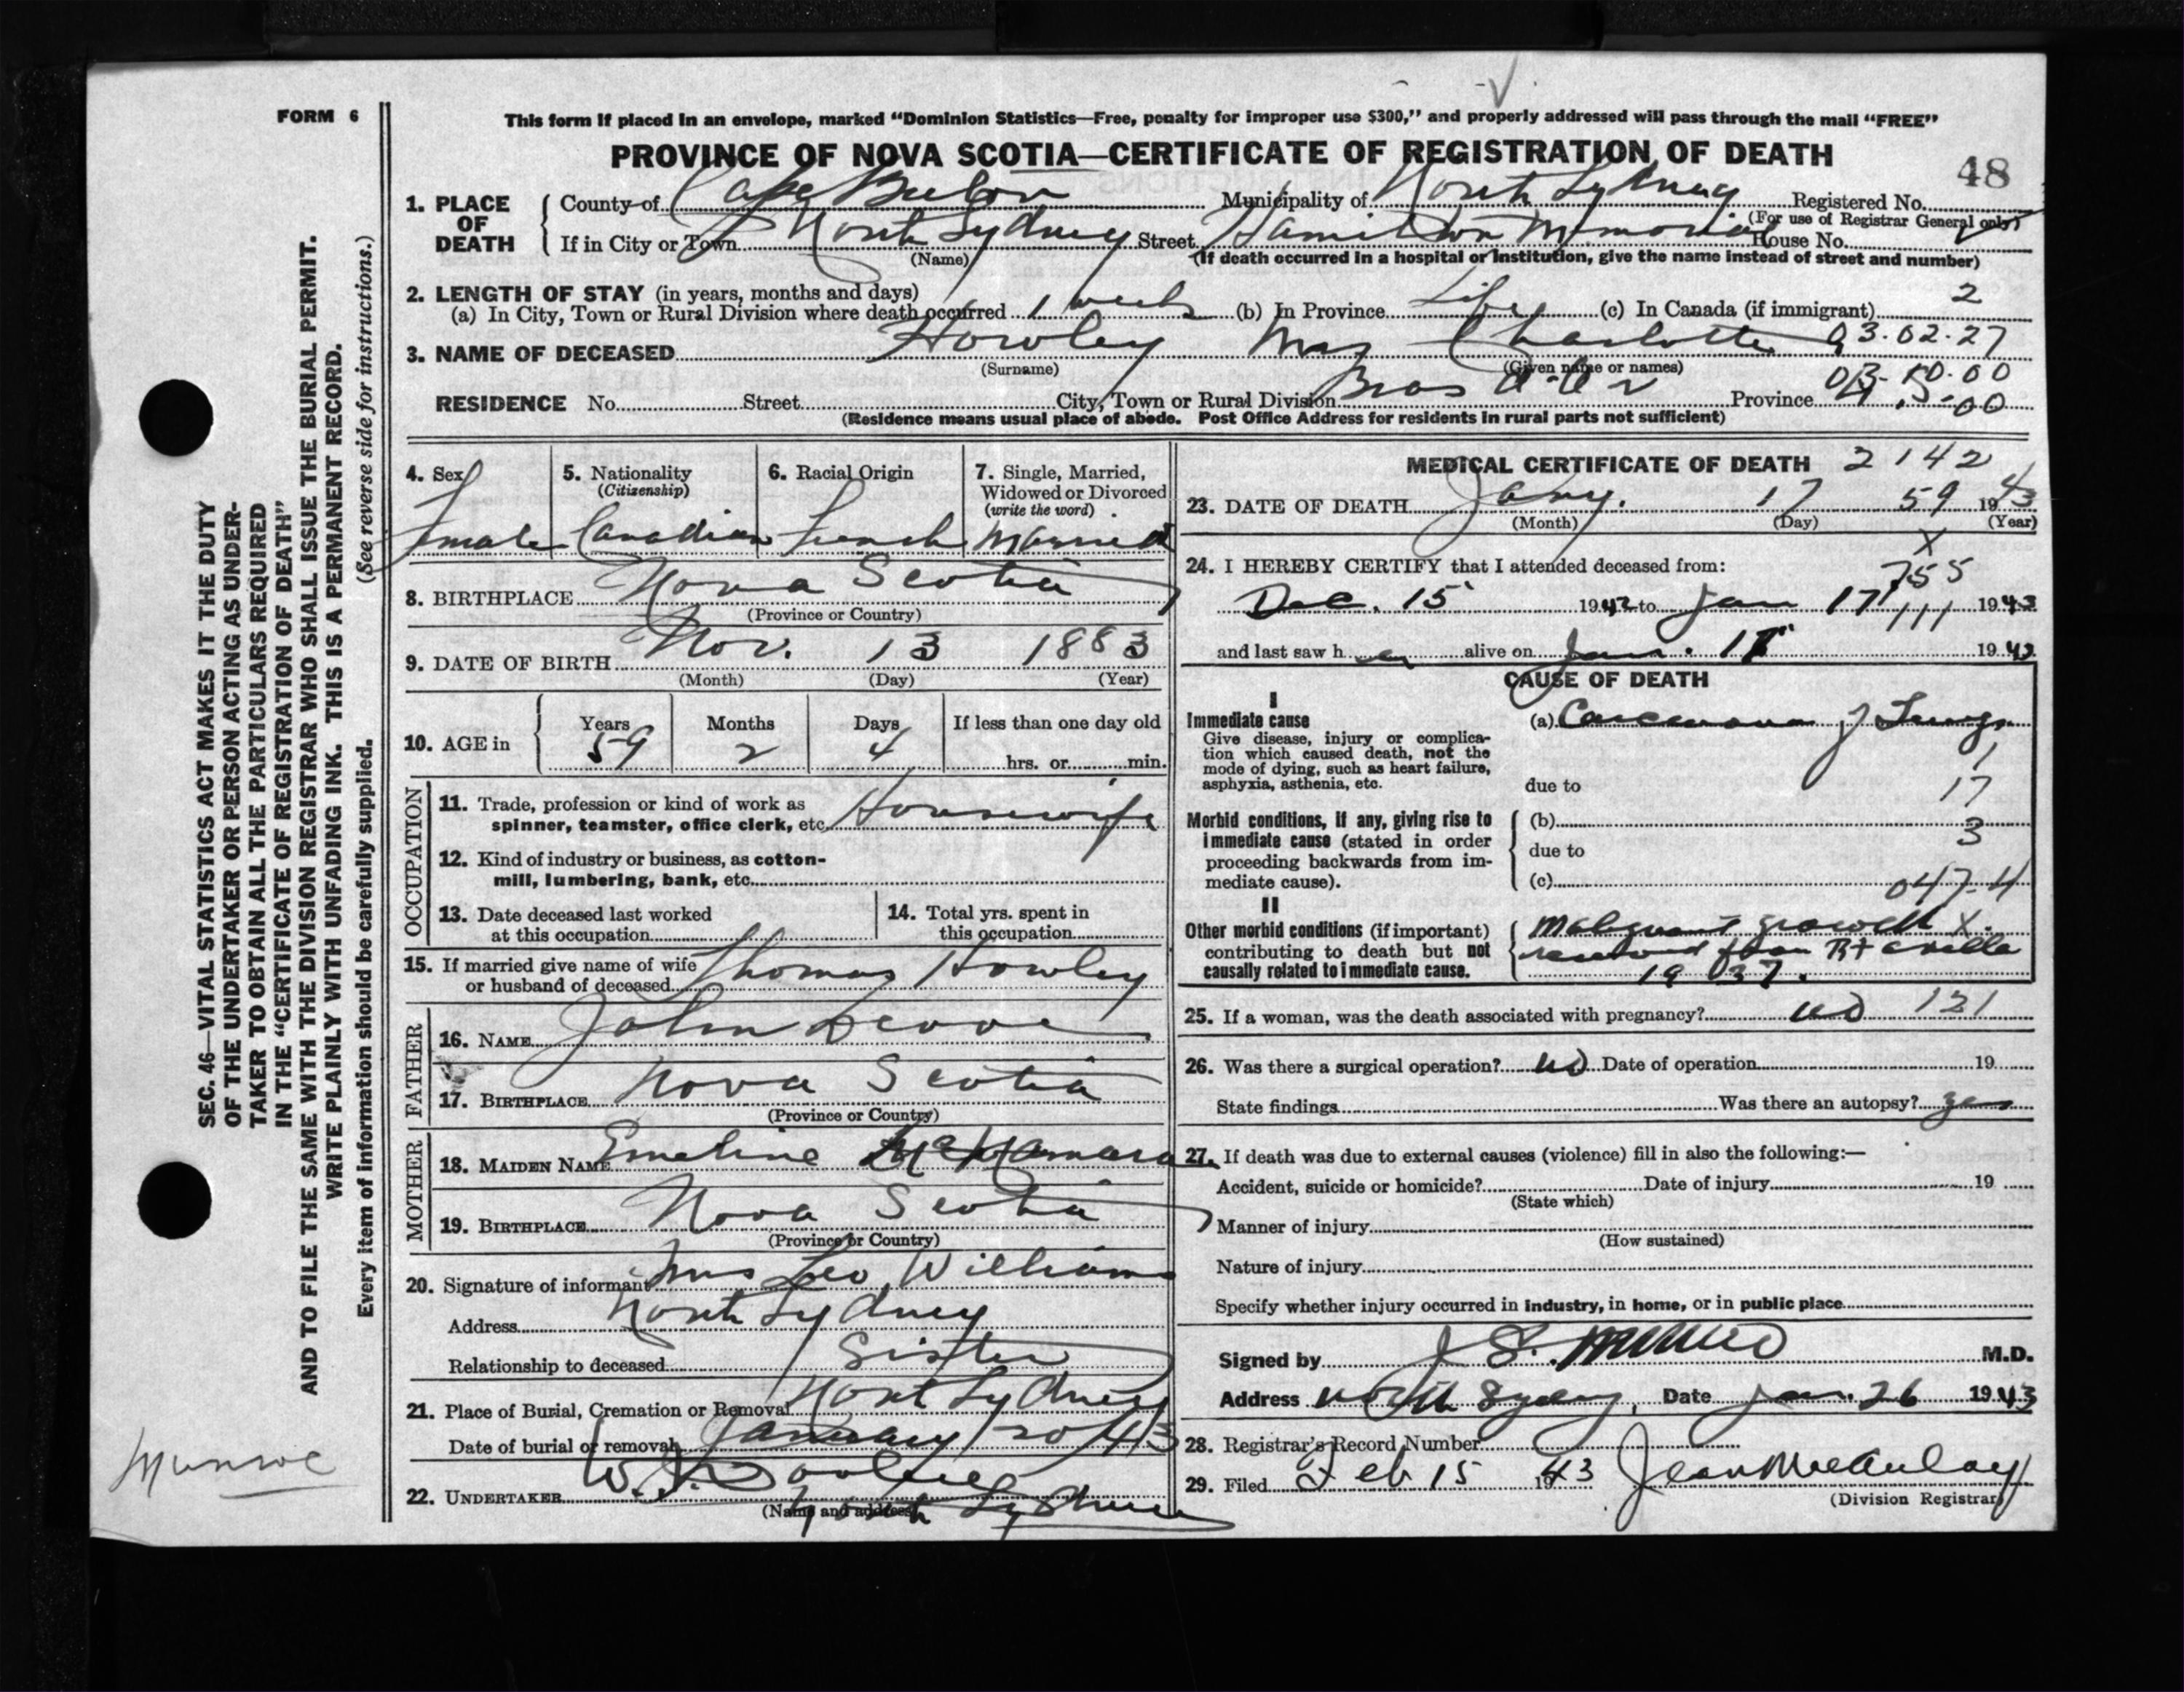 FORM 6
This form if placed in an envelope, marked “Dominion Statistics—Free, penalty for improper use $300,” and properly addressed will pass through the mail “FREE”
PROVINCE OF NOVA SCOTIA—CERTIFICATE OF REGISTRATION OF DEATH
48
1. PLACE OF DEATH
County of Cape Breton Municipality of North Sydney Registered No.
(For use of Registrar General only)
If in City or Town North Sydney Street Hamilton Memorial House No.
(Name) (If death occurred in a hospital or institution, give the name instead of street and number)
2. LENGTH OF STAY (in years, months and days) 2
(a) In City, Town or Rural Division where death occurred 1 week (b) In Province Life (c) In Canada (if immigrant)
3. NAME OF DECEASED Howley Mrs Charlotte 03.02.27
(Surname) (Given name or names)
RESIDENCE No. Street City, Town or Rural Division Bras d'Or Province
(Residence means usual place of abode. Post Office Address for residents in rural parts not sufficient)
4. Sex 5. Nationality 6. Racial Origin 7. Single, Married,
(Citizenship) Widowed or Divorced
(write the word)
Female Canadian French Married
8. BIRTHPLACE Nova Scotia
(Province or Country)
9. DATE OF BIRTH Nov. 13 1883
(Month) (Day) (Year)
10. AGE in Years Months Days If less than one day old
59 2 4 hrs. or min.
OCCUPATION
11. Trade, profession or kind of work as
spinner, teamster, office clerk, etc. Housewife
12. Kind of industry or business, as cotton-
mill, lumbering, bank, etc.
13. Date deceased last worked
at this occupation
14. Total yrs. spent in
this occupation
15. If married give name of wife
or husband of deceased Thomas Howley
FATHER
16. NAME John
17. BIRTHPLACE Nova Scotia
(Province or Country)
MOTHER
18. MAIDEN NAME Emeline McNamara
19. BIRTHPLACE Nova Scotia
(Province or Country)
20. Signature of informant Mrs Leo Williams
Address North Sydney
Relationship to deceased Sister
21. Place of Burial, Cremation or Removal North Sydney
Date of burial or removal January 20/43
22. UNDERTAKER W.J. Dooley
(Name and address) North Sydney
MEDICAL CERTIFICATE OF DEATH 2142
23. DATE OF DEATH Jany. 17 59 1943
(Month) (Day) (Year)
X
24. I HEREBY CERTIFY that I attended deceased from:
755
Dec. 15 1942 to Jan 17 1943
111
and last saw her alive on Jan. 17 1943
CAUSE OF DEATH
I
Immediate cause (a) Carcinoma of Lungs
Give disease, injury or complica-
tion which caused death, not the
mode of dying, such as heart failure,
asphyxia, asthenia, etc. due to
1
17
Morbid conditions, if any, giving rise to (b)
immediate cause (stated in order due to 3
proceeding backwards from im-
mediate cause). (c) 047-4
II
Other morbid conditions (if important) Malignant growth X
contributing to death but not removed from Rt axilla
causally related to immediate cause. 1937.
25. If a woman, was the death associated with pregnancy? no 121
26. Was there a surgical operation? no Date of operation 19
State findings Was there an autopsy? yes
27. If death was due to external causes (violence) fill in also the following:—
Accident, suicide or homicide? Date of injury 19
(State which)
Manner of injury
(How sustained)
Nature of injury
Specify whether injury occurred in industry, in home, or in public place
Signed by J. S. Munro M.D.
Address North Sydney, Date Jan. 26 1943
28. Registrar's Record Number
29. Filed Feb 15 1943 Jean McAulay
(Division Registrar)
SEC. 46—VITAL STATISTICS ACT MAKES IT THE DUTY
OF THE UNDERTAKER OR PERSON ACTING AS UNDER-
TAKER TO OBTAIN ALL THE PARTICULARS REQUIRED
IN THE “CERTIFICATE OF REGISTRATION OF DEATH”
AND TO FILE THE SAME WITH THE DIVISION REGISTRAR WHO SHALL ISSUE THE BURIAL PERMIT.
WRITE PLAINLY WITH UNFADING INK. THIS IS A PERMANENT RECORD.
Every item of information should be carefully supplied. (See reverse side for instructions.)
Munroe